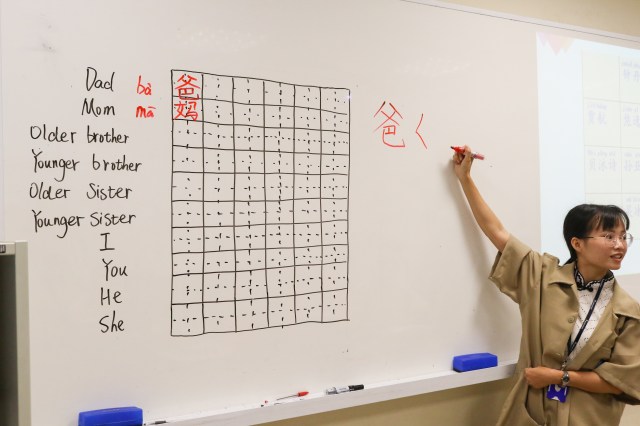 Dad bà 爸
Mom mā 妈
Older brother
Younger brother
Older Sister
Younger Sister
I
You
He
She
爸